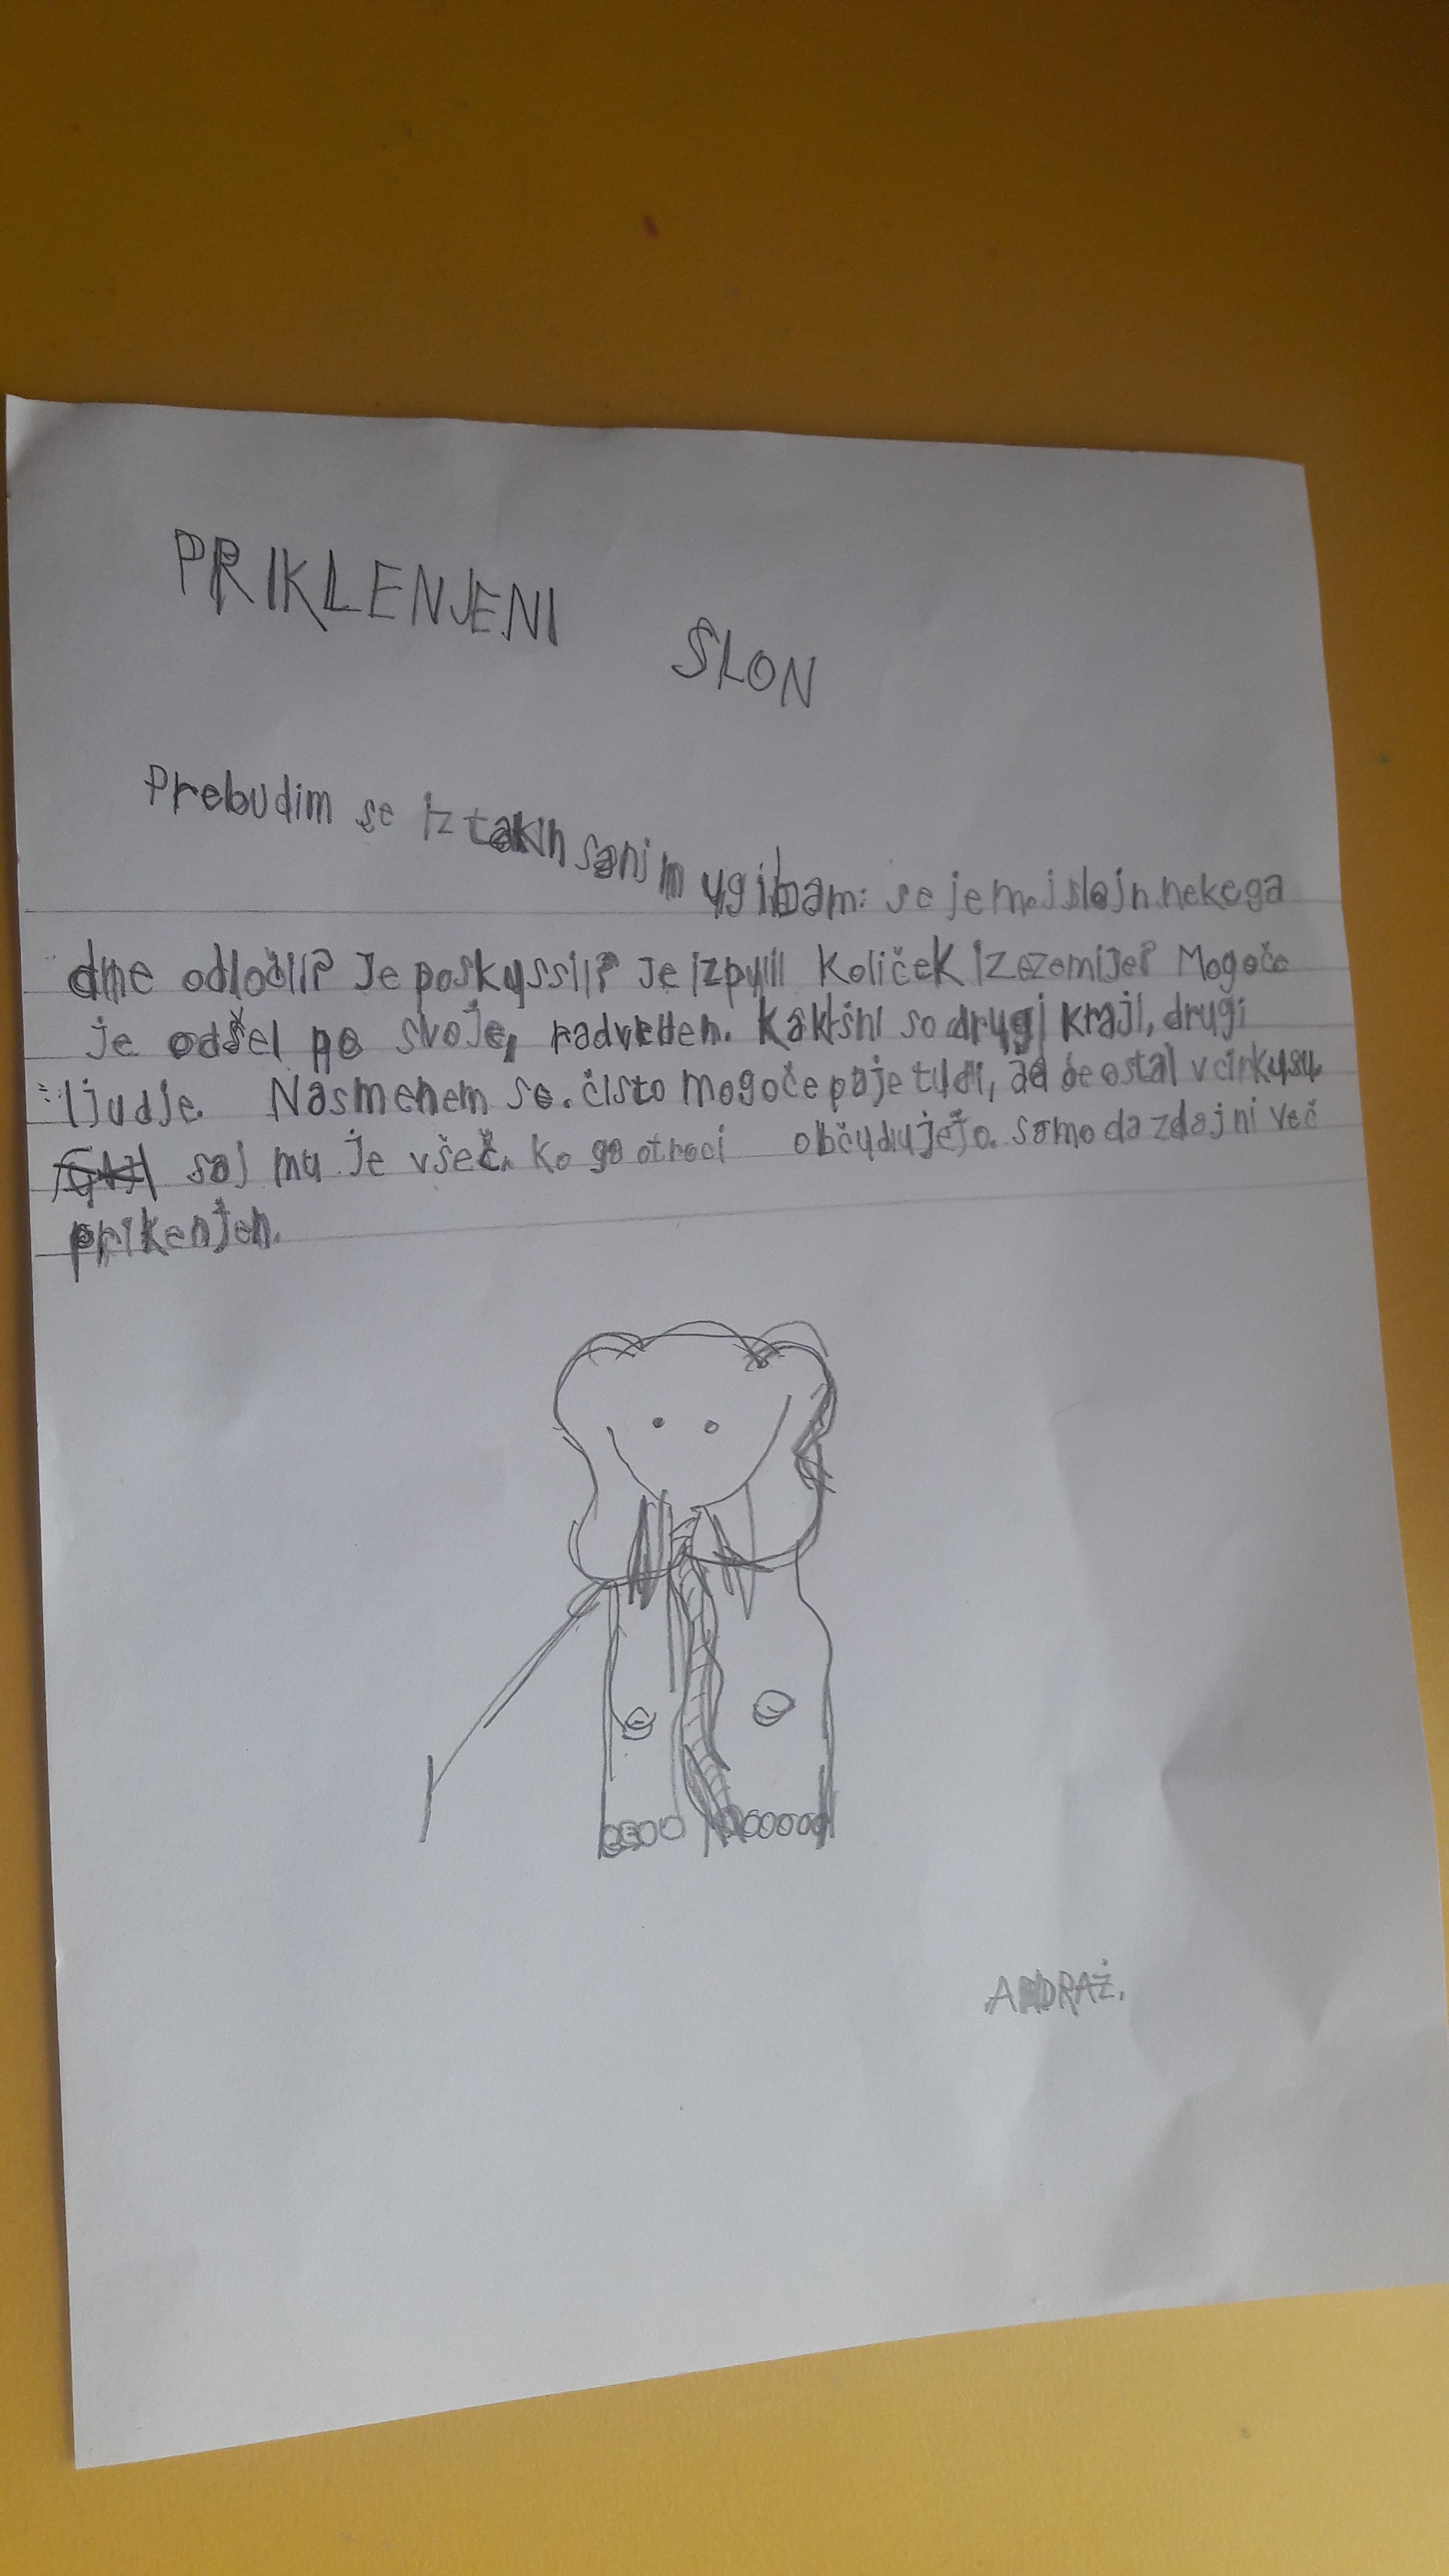 PRIKLENJENI SLON
Prebudim se iz takih sanj in ugibam: se je moj slojn nekega
dne odločil? Je poskussil? Je izpulil količek izezemlje? Mogoče
je odšel po svoje, radveden. Kakršni so drugi kraji, drugi
ljudje. Nasmenem se. čisto mogoče paje tudi, da de ostal v cirkusu.
saj mu je všeč. ko ga otroci občudujejo. samo da zdaj ni več
prikenjen.
ANDRAŽ.